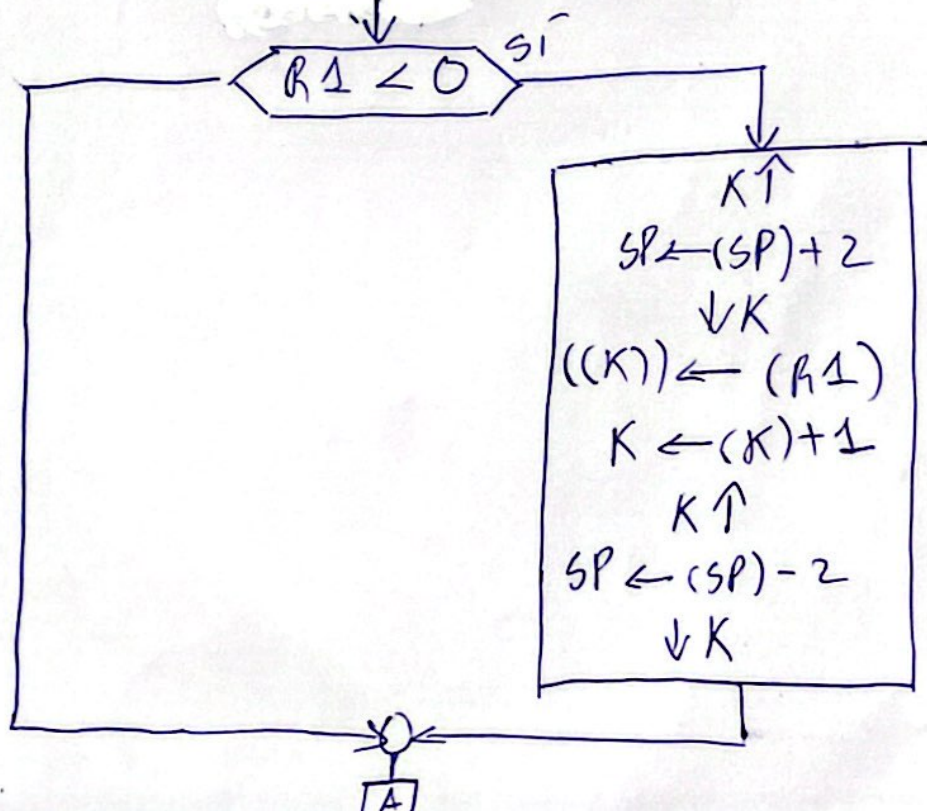 R1 < 0
sí
K↑
SP←(SP)+2
↓K
((K))← (R1)
K ←(K)+1
K↑
SP ←(SP)-2
↓K
A